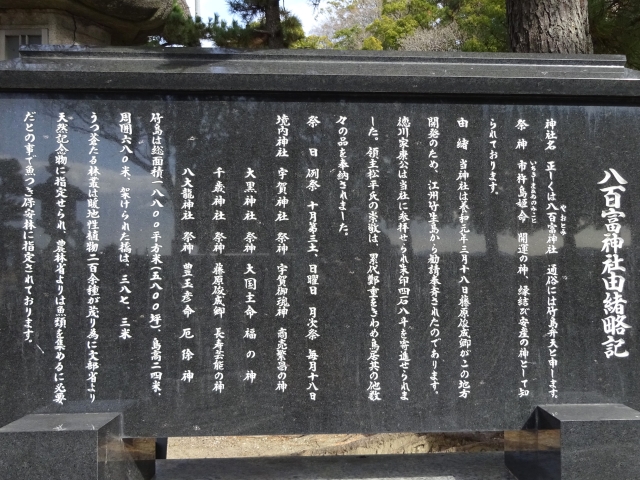 八百富神社由緒略記
神社名 正しくは八百富神社 通俗には竹島弁天と申します。
やおとみ
祭神 市杵島姫命 開運の神、縁結び安産の神として知
いちきしまひめのみこと
られております。
由緒 当神社は養和元年三月十八日藤原俊成卿がこの地方
開発のため、江州竹生島から勧請奉斎されたのであります。
徳川家康公は当社に参拝せられ朱印四石八斗を寄進せられま
した。領主松平氏の崇敬は、累代鄭重をきわめ鳥居其の他数
々の品を奉納されました。
祭日 例祭 十月第三土、日曜日 月次祭 毎月十八日
境内神社 宇賀神社 祭神 宇賀御魂神 商売繁昌の神
大黒神社 祭神 大国主命 福の神
千歳神社 祭神 藤原俊成卿 長寿芸能の神
八大龍神社 祭神 豊玉彦命 厄除神
竹島は総面積一八八〇〇平方米(五八〇〇坪)、島高二四米、
周囲六八〇米、架けられた橋は、三八七、三米
うつ蒼たる林叢は暖地性植物二百余種が茂り為に文部省より
天然記念物に指定せられ、農林省よりは魚類を集めるに必要
だとの事で魚つき保安林に指定されております。